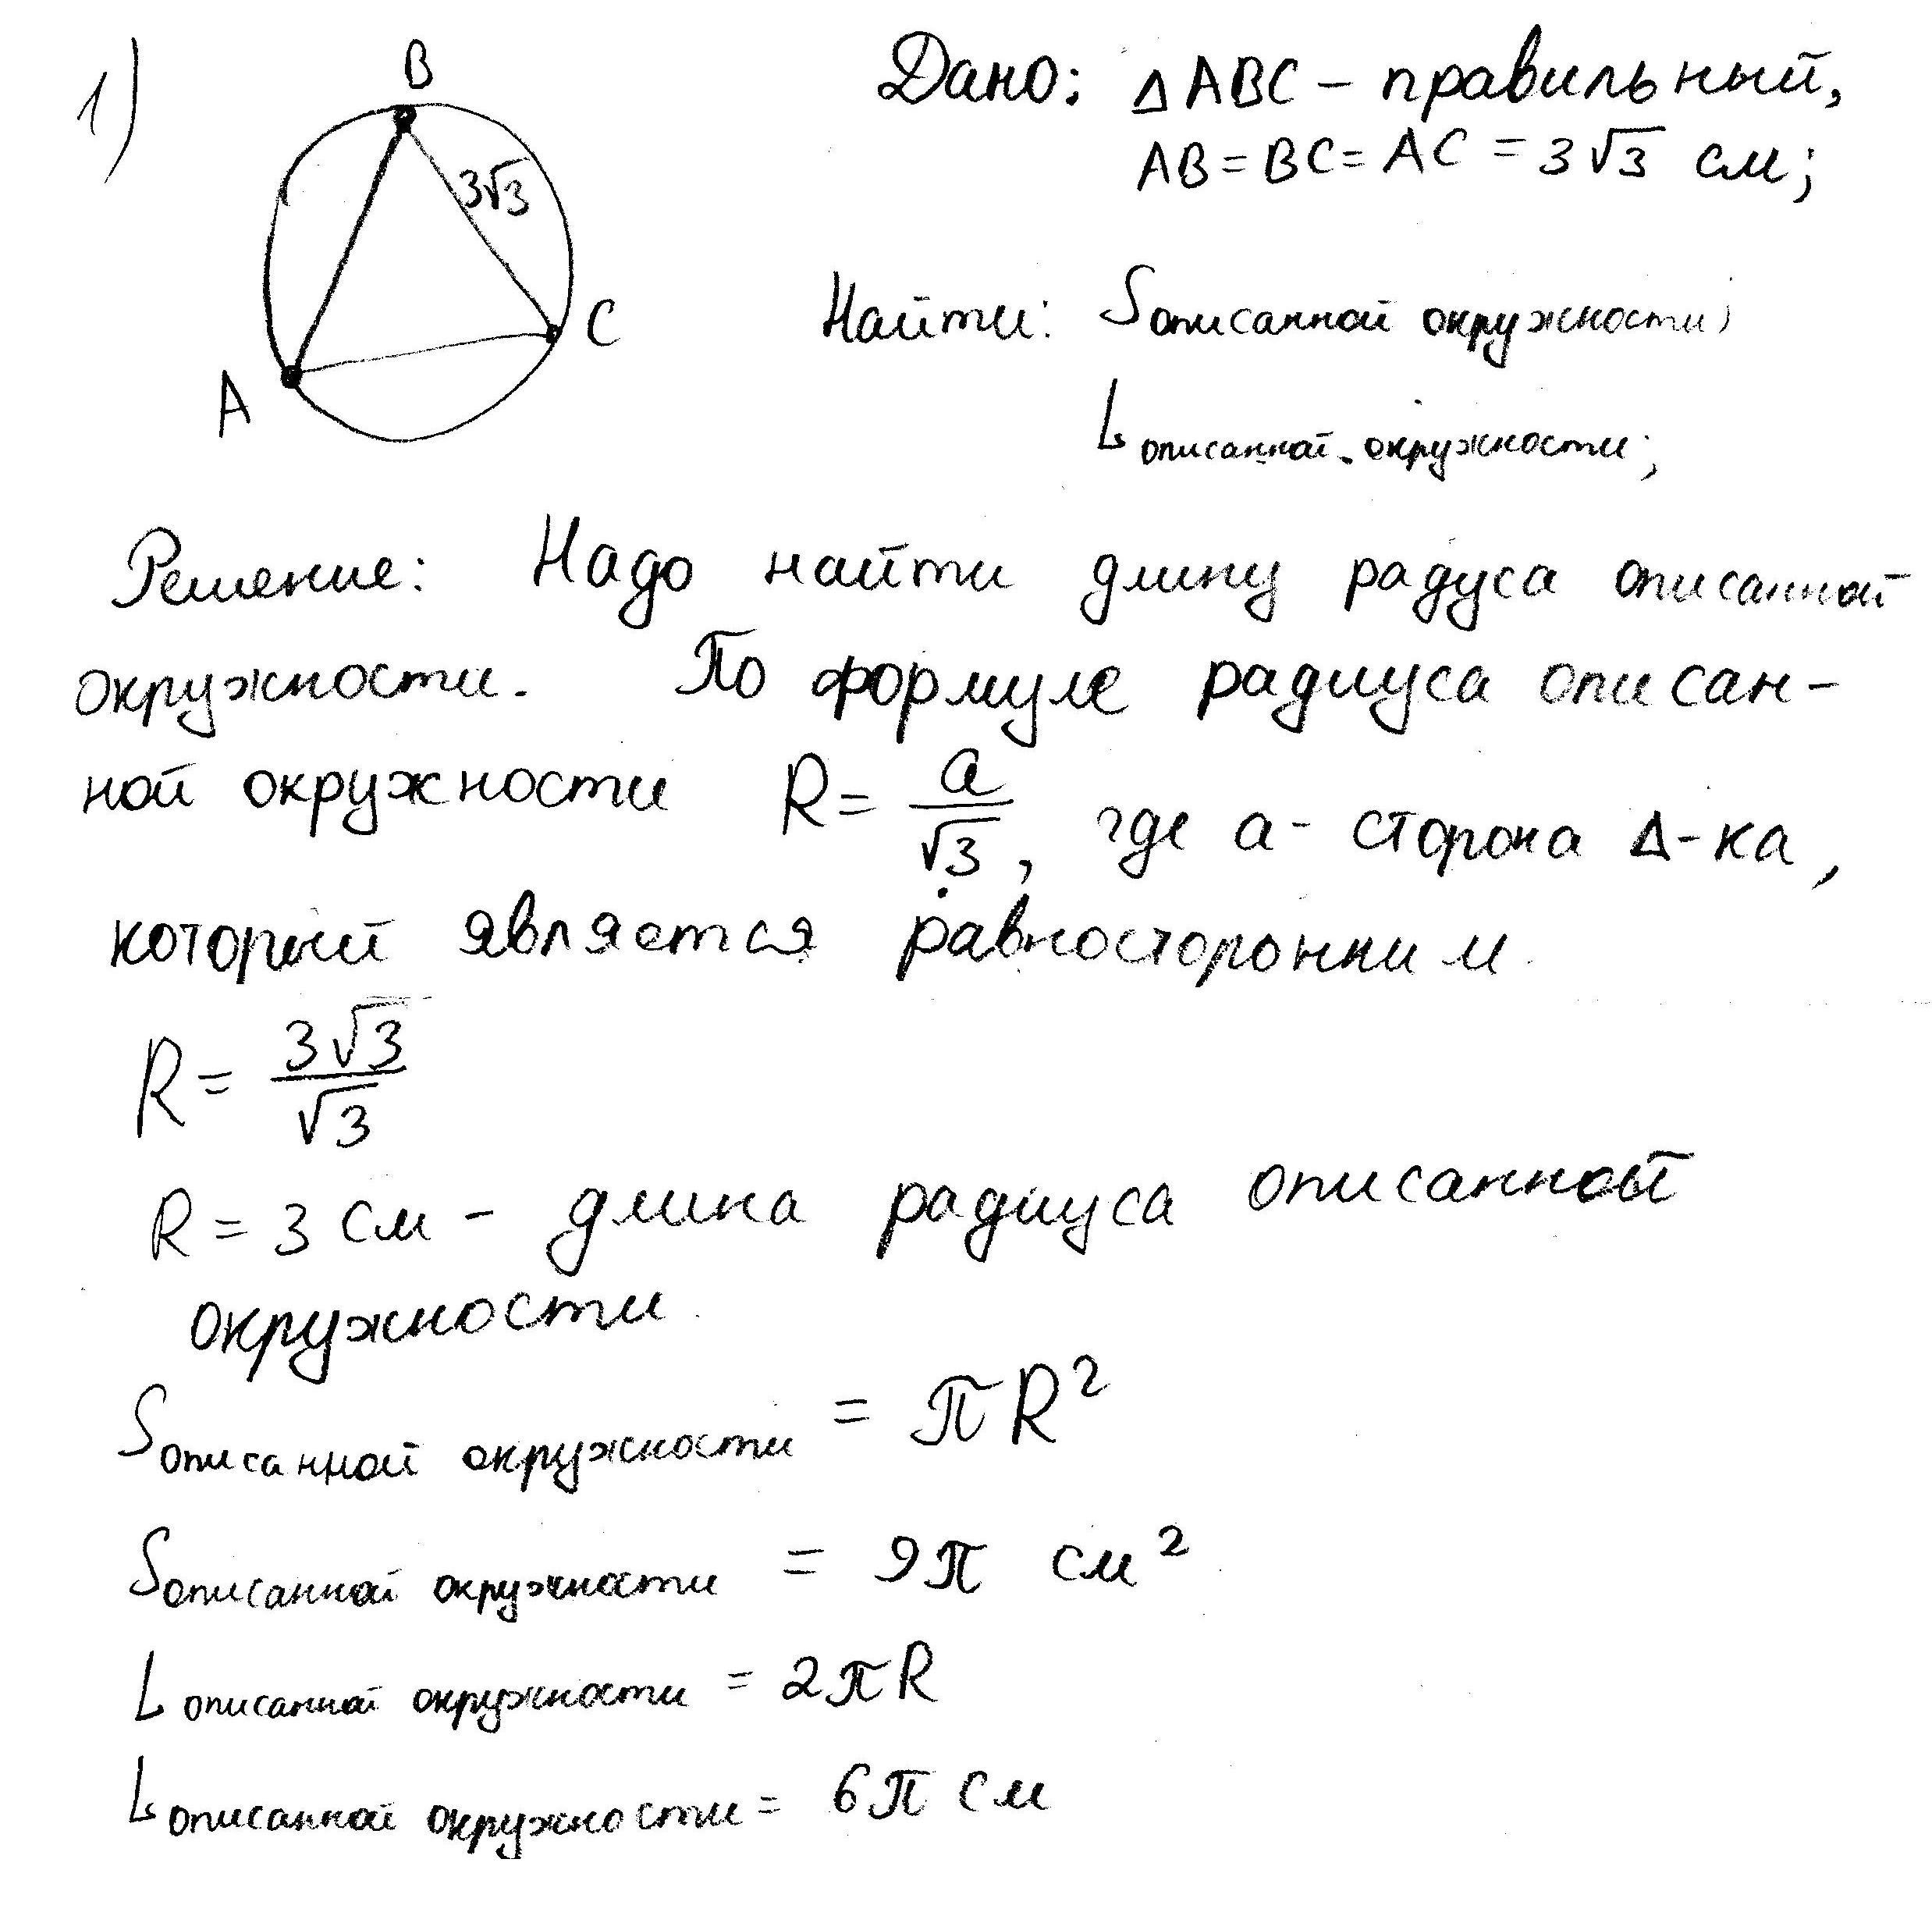 1)
B
3√3
C
A
Дано: Δ ABC - правильный,
AB = BC = AC = 3√3 см;
Найти: S описанной окружности;
L описанной окружности;
Решение: Надо найти длину радуса описанной
окружности. По формуле радиуса описан-
ной окружности R = a/√3, где a - сторона Δ-ка,
который является равносторонним.
R = 3√3/√3
R = 3 см - длина радиуса описанной
окружности.
S описанной окружности = πR²
S описанной окружности = 9π см²
L описанной окружности = 2πR
L описанной окружности = 6π см